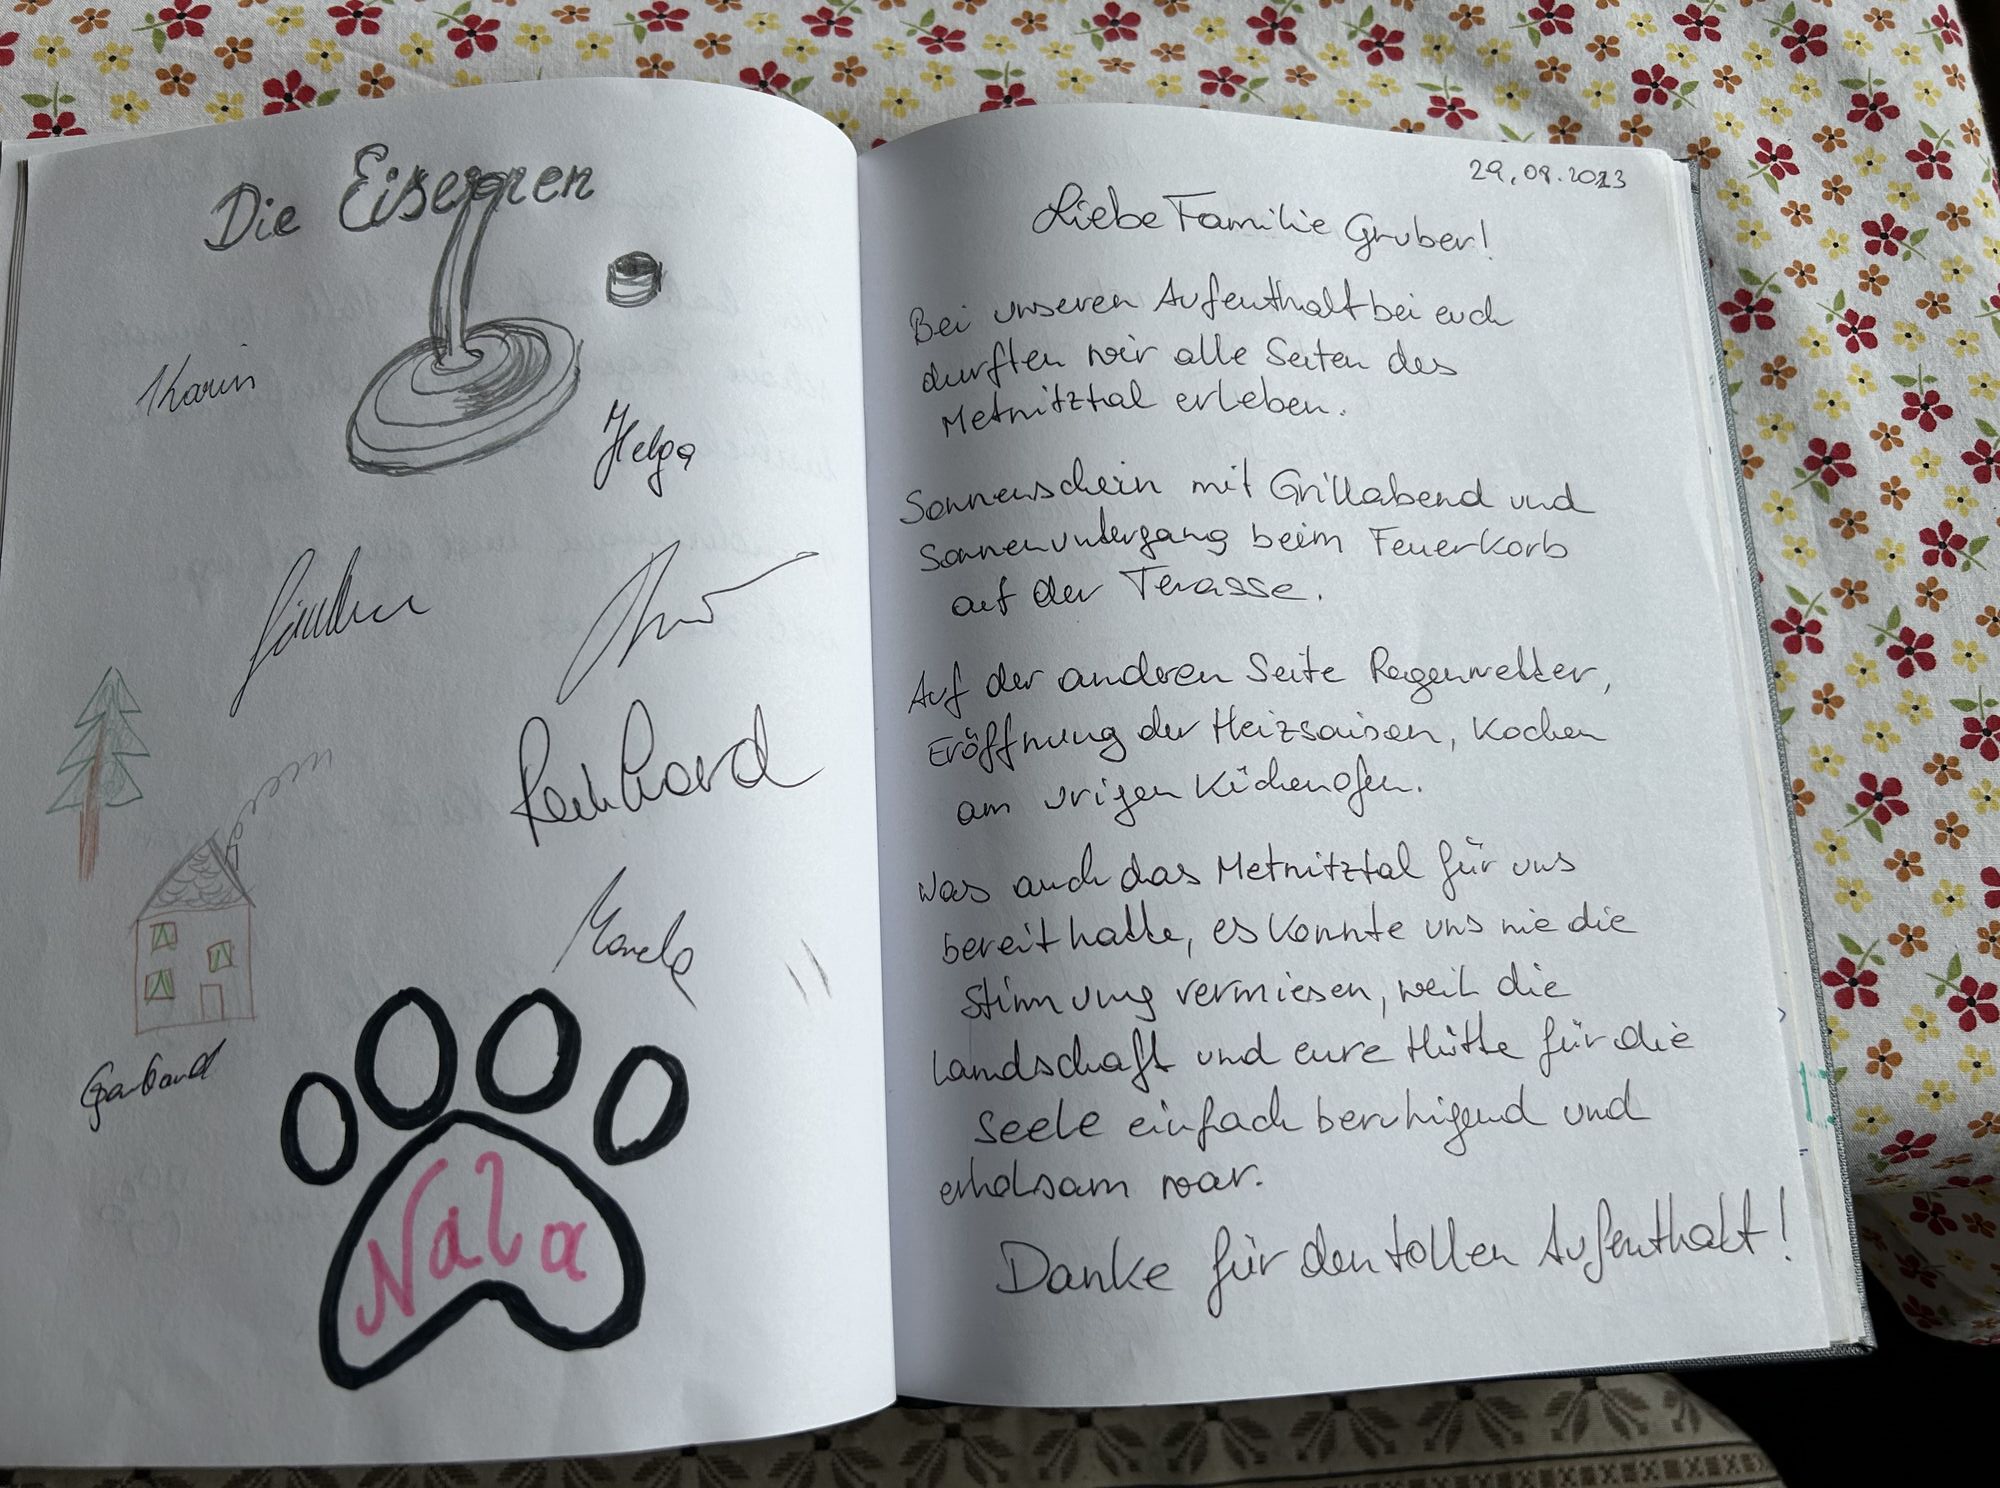 Die Eisernen
Karin
Helga
Reinhard
Nala
29.08.2023
Liebe Familie Gruber!
Bei unseren Aufenthalt bei euch
durften wir alle Seiten des
Metnitztal erleben.
Sonnenschein mit Grillabend und
Sonnenuntergang beim Feuerkorb
auf der Terasse.
Auf der anderen Seite Regenwetter,
Eröffnung der Heizsaison, Kochen
am urigen Küchenofen.
Was auch das Metnitztal für uns
bereit hatte, es konnte uns nie die
Stimmung vermiesen, weil die
Landschaft und eure Hütte für die
Seele einfach beruhigend und
erholsam war.
Danke für den tollen Aufenthalt!